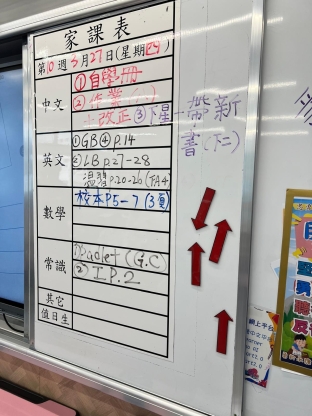 家課表
第10週 3月27日(星期四)
中文
①自學冊
②作業(八)
小改正 ③下星一帶新
書(下二)
英文
①GB④p.14
②LB p.27-28
溫習p.20-26
數學
校本P5-7 (3頁)
常識
①Padlet (G.C)
②I P.2
其它
值日生
網上平台